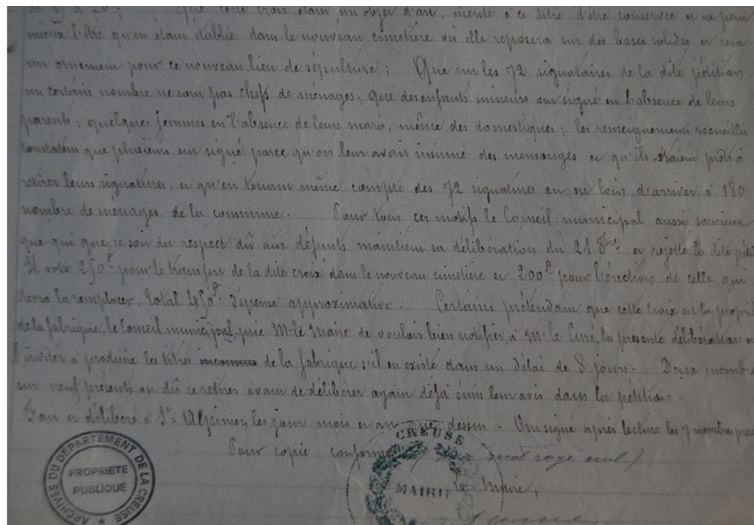 que cette croix étant un objet d'art, mérite à ce titre d'être conservée et ne peut
mieux l'être qu'en étant établie dans le nouveau cimetière où elle reposera sur des bases solides et sera
un ornement pour ce nouveau lieu de sépulture ; Que sur les 72 signataires de la dite pétition
un certain nombre ne sont pas chefs de ménages, que des enfants mineurs ont signé en l'absence de leurs
parents, quelques femmes en l'absence de leurs mari, même des domestiques ; les renseignements recueillis
constatent que plusieurs ont signé parce qu'on leur avait insinué des mensonges et qu'ils étaient prêts à
retirer leurs signatures, et qu'en tenant même compte des 72 signatures on est loin d'arriver à 180
nombre de ménages de la commune. Pour tous ces motifs le Conseil municipal aussi soucieux
que qui que ce soit du respect dû aux défunts maintient sa délibération du 21 8bre et rejette la dite
Il vote 250f pour le transfert de la dite croix dans le nouveau cimetière et 200f pour l'érection de celle qui
devra la remplacer, total 450f dépense approximative. Certains prétendant que cette croix est la
de la fabrique, le Conseil municipal prie Mr le Maire de vouloir bien notifier, à Mr le Curé, la présente délibération et
l'inviter à produire les titres de la fabrique s'il en existe dans un délai de 8 jours. Deux membres
sur neuf présents ont dû se retirer avant de délibérer ayant déjà émis leur avis dans la pétition.
Fait et délibéré à St Alpinien, les jour mois et an que dessus. Ont signé après lecture les 7 membres
Pour copie conforme (mot rayé nul)
Le Maire,
ARCHIVES DU DÉPARTEMENT DE LA CREUSE
PROPRIETE
PUBLIQUE
CREUSE
MAIRIE